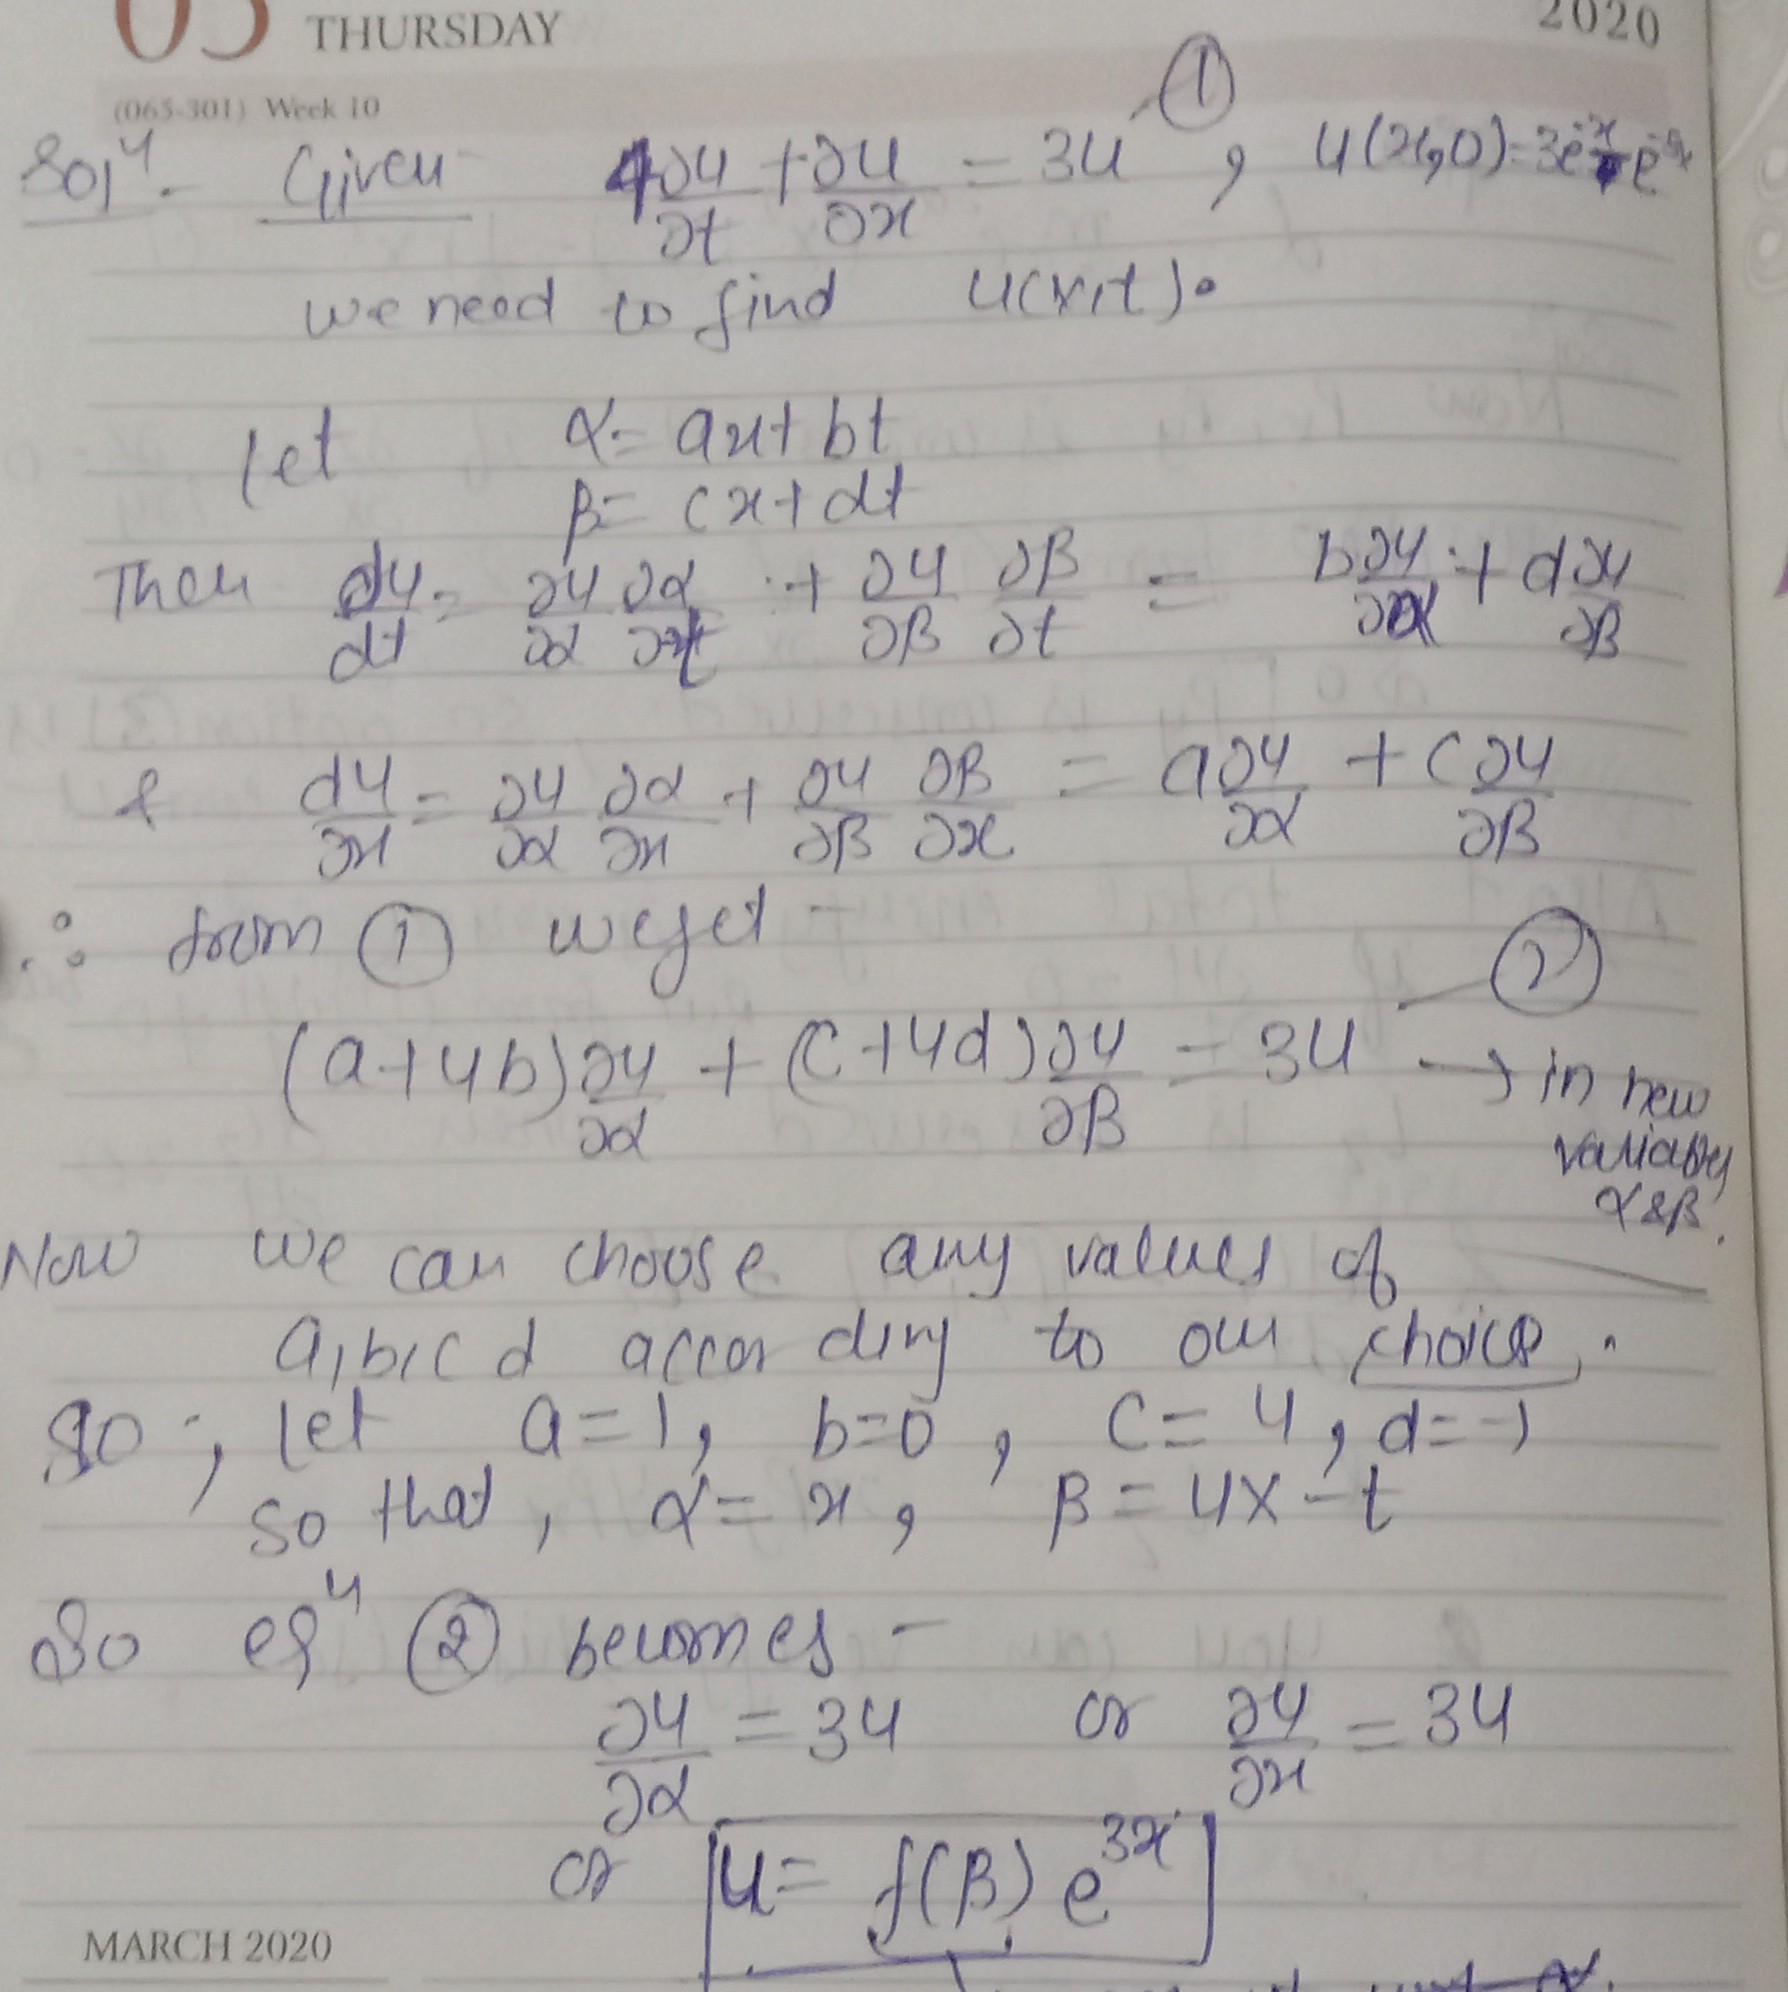 05 THURSDAY 2020
(065-301) Week 10
Solⁿ. Given 4∂u/∂t + ∂u/∂x = 3u — ①, u(x,0) = 3e^-x - e^-5x
we need to find u(x,t).
Let α = ax + bt
β = cx + dt
Then du/dt = ∂u/∂α ∂α/∂t + ∂u/∂β ∂β/∂t = b∂u/∂α + d∂u/∂β
& du/∂x = ∂u/∂α ∂α/∂x + ∂u/∂β ∂β/∂x = a∂u/∂α + c∂u/∂β
∴ from ① we get -
(a+4b)∂u/∂α + (c+4d)∂u/∂β = 3u — ② → in new variables α & β.
Now we can choose any values of
a,b,c d according to our choice.
So, let a=1, b=0, c=4, d=-1
so that, α = x, β = 4x - t
So eqⁿ ② becomes -
∂u/∂α = 3u or ∂u/∂x = 3u
or u = f(β) e^3x
MARCH 2020